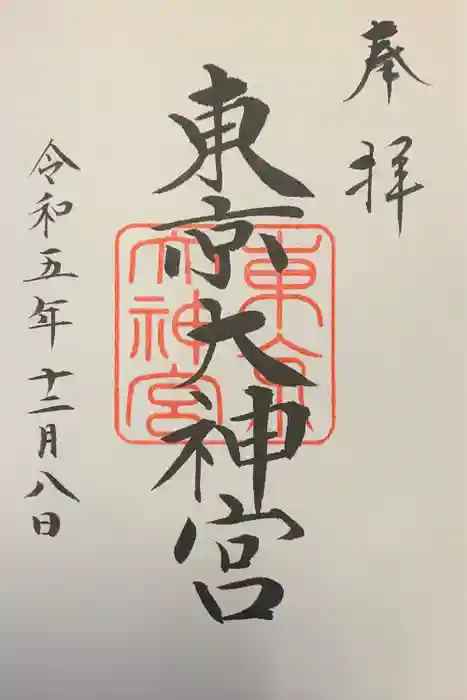 奉拝
東京大神宮
東京
大神宮
令和五年十二月八日